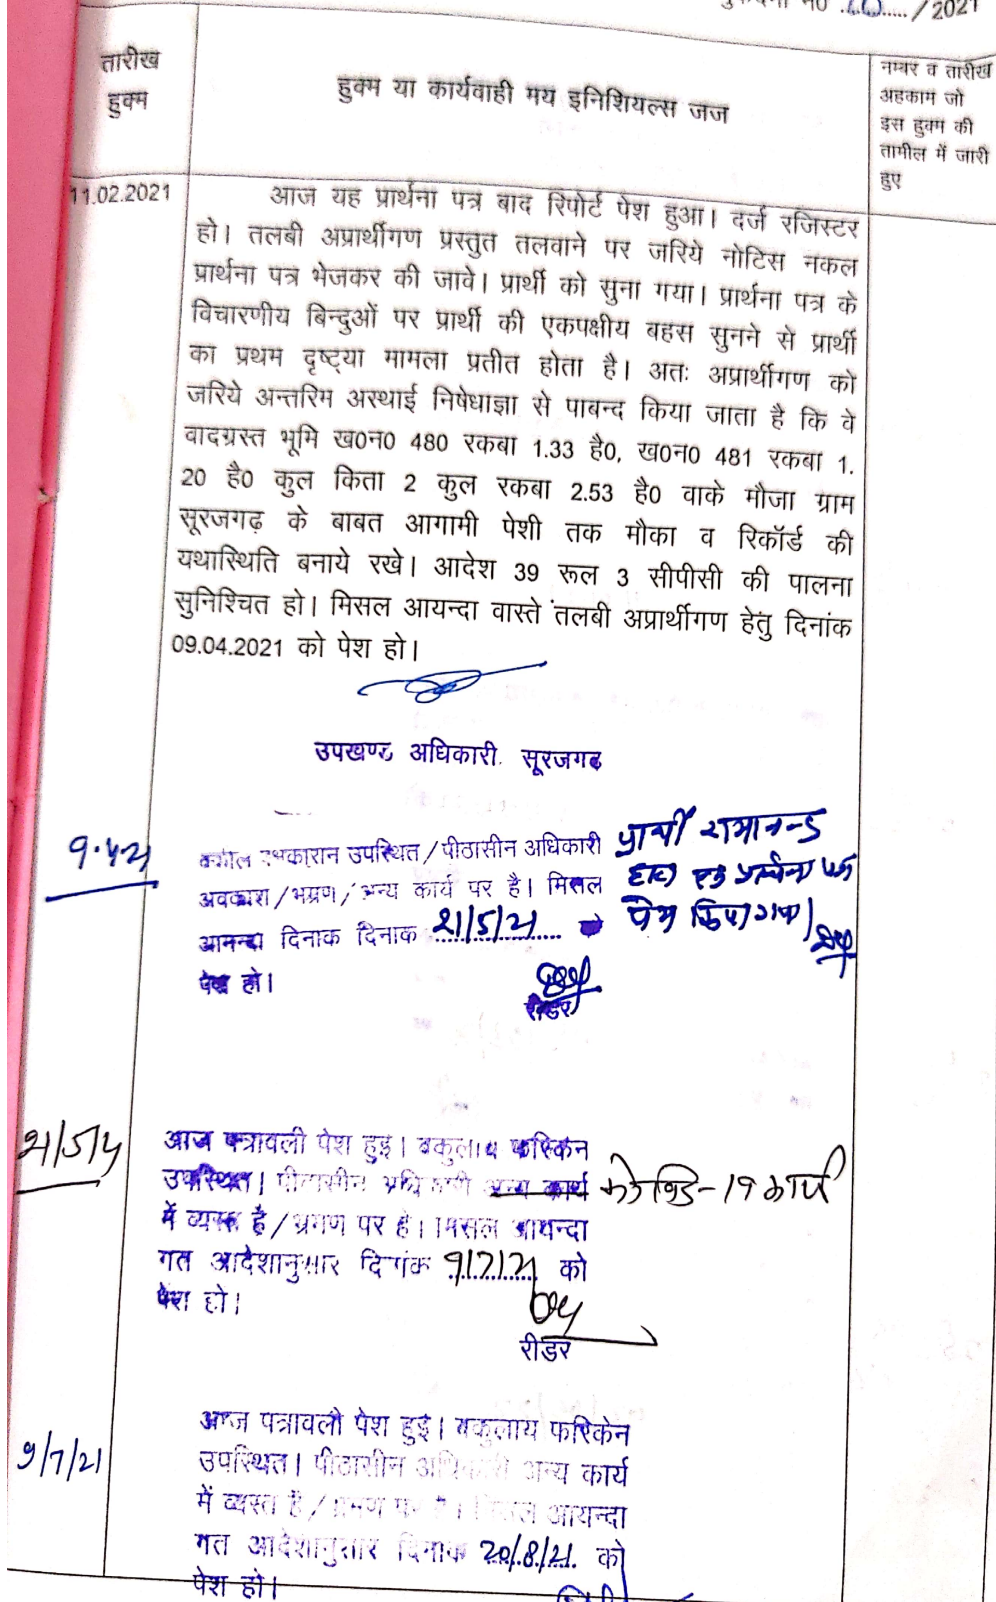 नं0 .60...../2021
तारीख
हुक्म
हुक्म या कार्यवाही मय इनिशियल्स जज
नम्बर व तारीख
अहकाम जो
इस हुक्म की
तामील में जारी
हुए
11.02.2021
आज यह प्रार्थना पत्र बाद रिपोर्ट पेश हुआ। दर्ज रजिस्टर
हो। तलबी अप्रार्थीगण प्रस्तुत तलवाने पर जरिये नोटिस नकल
प्रार्थना पत्र भेजकर की जावे। प्रार्थी को सुना गया। प्रार्थना पत्र के
विचारणीय बिन्दुओं पर प्रार्थी की एकपक्षीय बहस सुनने से प्रार्थी
का प्रथम दृष्ट्या मामला प्रतीत होता है। अतः अप्रार्थीगण को
जरिये अन्तरिम अस्थाई निषेधाज्ञा से पाबन्द किया जाता है कि वे
वादग्रस्त भूमि ख0न0 480 रकबा 1.33 है0, ख0न0 481 रकबा 1.
20 है0 कुल किता 2 कुल रकबा 2.53 है0 वाके मौजा ग्राम
सूरजगढ़ के बाबत आगामी पेशी तक मौका व रिकॉर्ड की
यथास्थिति बनाये रखे। आदेश 39 रूल 3 सीपीसी की पालना
सुनिश्चित हो। मिसल आयन्दा वास्ते तलबी अप्रार्थीगण हेतु दिनांक
09.04.2021 को पेश हो।
उपखण्ड अधिकारी. सूरजगढ
9.4.21
वकील उभकारान उपस्थित/पीठासीन अधिकारी
अवकाश/भ्रमण/अन्य कार्य पर है। मिसल
आनन्दा दिनाक दिनाक 21/5/21 को
पेश हो।
रीडर
प्रार्थी रामानन्द
द्वारा एक प्रार्थना पत्र
पेश किया गया।
21/5/21
आज पत्रावली पेश हुई। वकुलाय फरिकेन
उपस्थित। पीठासीन अधिकारी अन्य कार्य कोविड-19 कार्य
में व्यस्त है/भ्रमण पर है। मिसल आयन्दा
गत आदेशानुसार दिनांक 9/7/21 को
पेश हो।
रीडर
9/7/21
आज पत्रावली पेश हुई। वकुलाय फरिकेन
उपस्थित। पीठासीन अधिकारी अन्य कार्य
में व्यस्त है/भ्रमण पर है। मिसल आयन्दा
गत आदेशानुसार दिनाक 20/8/21 को
पेश हो।